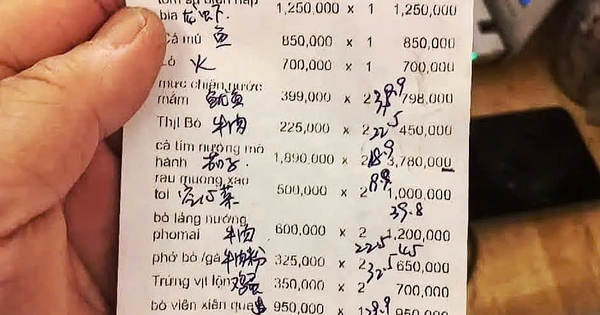 bia 龙虾 1,250,000 x 1 1,250,000
Cá mú 鱼 850,000 x 1 850,000
火 700,000 x 1 700,000
mực chiên nước
mắm 鱿鱼 399,000 x 2 798,000
Thịt Bò 牛肉 225,000 x 2 22.5 450,000
cà tím nướng mỡ
hành 茄子 1,890,000 x 2 18.9 3,780,000
rau muống xào 18.9
tỏi 空心菜 500,000 x 2 1,000,000
39.8
bò lảng nướng
phomai 牛肉 600,000 x 2 1,200,000
22.5 45
phở bò /gà 牛肉粉 325,000 x 2 32.5 650,000
Trứng vịt lộn 鸡蛋 350,000 x 2 700,000
bò viên xiên que 950,000 x 1 950,000